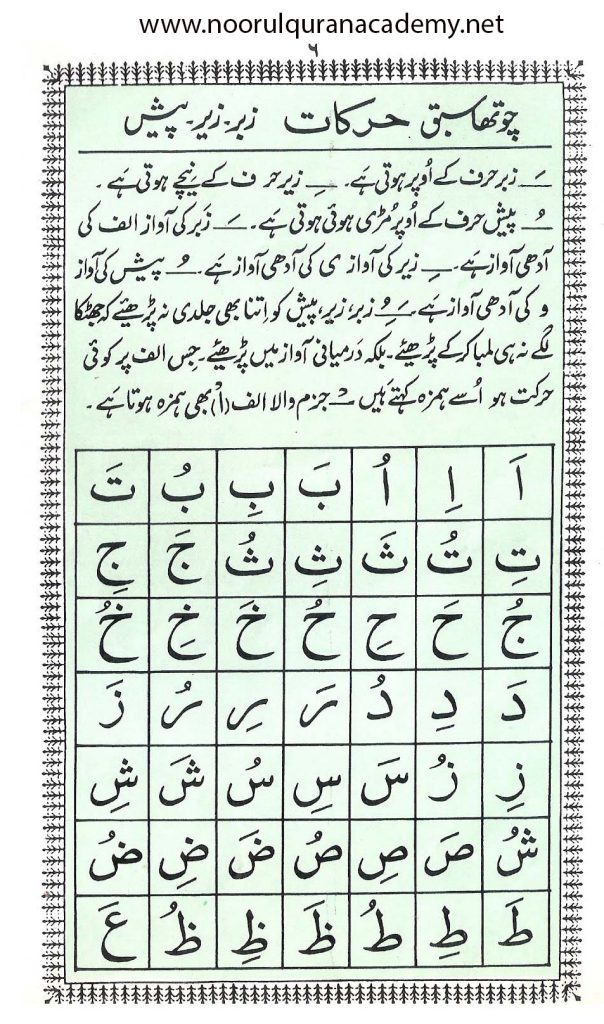 www.noorulquranacademy.net
٦
چوتھا سبق حرکات زبر۔ زیر۔ پیش
ـَ زبر حرف کے اُوپر ہوتی ہے۔ ـِ زیر حرف کے نیچے ہوتی ہے ۔
ـُ پیش حرف کے اُوپر مُڑی ہوئی ہوتی ہے۔ ـَ زَبر کی آواز الف کی
آدھی آواز ہے۔ ـِ زیر کی آواز ی کی آدھی آواز ہے۔ ـُ پیش کی آواز
و کی آدھی آواز ہے۔ ـَـِـُ زبر، زیر، پیش کو اِتنا بھی جلدی نہ پڑھیئے کہ جھٹکا
لگے نہ ہی لمبا کر کے پڑھیئے۔ بلکہ دَرمیانی آواز میں پڑھیئے۔ جس الف پر کوئی
حرکت ہو اُسے ہمزہ کہتے ہیں ـْ جزم والا الف (اْ) بھی ہمزہ ہوتا ہے ۔
اَ اِ اُ بَ بِ بُ تَ
تِ تُ ثَ ثِ ثُ جَ جِ
جُ حَ حِ حُ خَ خِ خُ
دَ دِ دُ رَ رِ رُ زَ
زِ زُ سَ سِ سُ شَ شِ
شُ صَ صِ صُ ضَ ضِ ضُ
طَ طِ طُ ظَ ظِ ظُ عَ